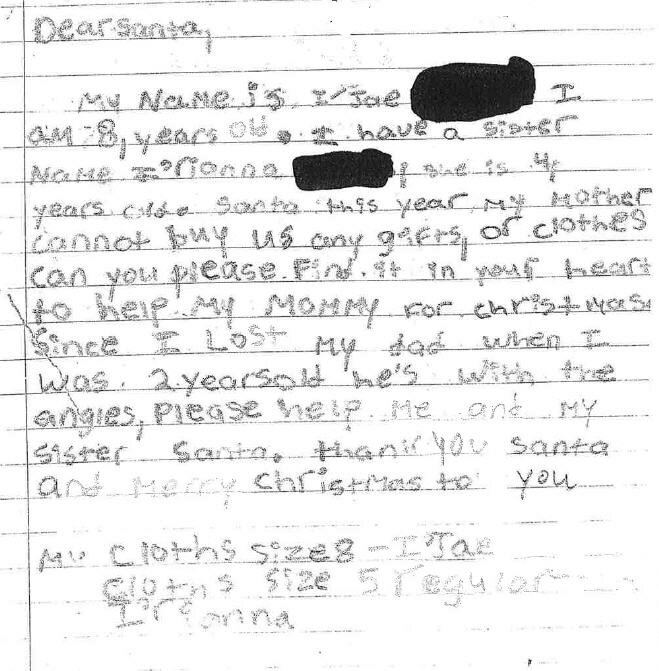 Dear Santa,
My Name is I'Jae I
am 8, years old. I have a sister
Name I'rionna she is 4
years old. Santa this year, my Mother
cannot buy us any gifts, or clothes
can you please. Find. it in your heart
to help My MOMMY For christmas.
Since I Lost My dad when I
was. 2 years old he's with the
angles, please help Me and My
sister Santa. thank you santa
and Merry Christmas to you
My Cloths size 8 - I'Jae
Cloths size 5 regular